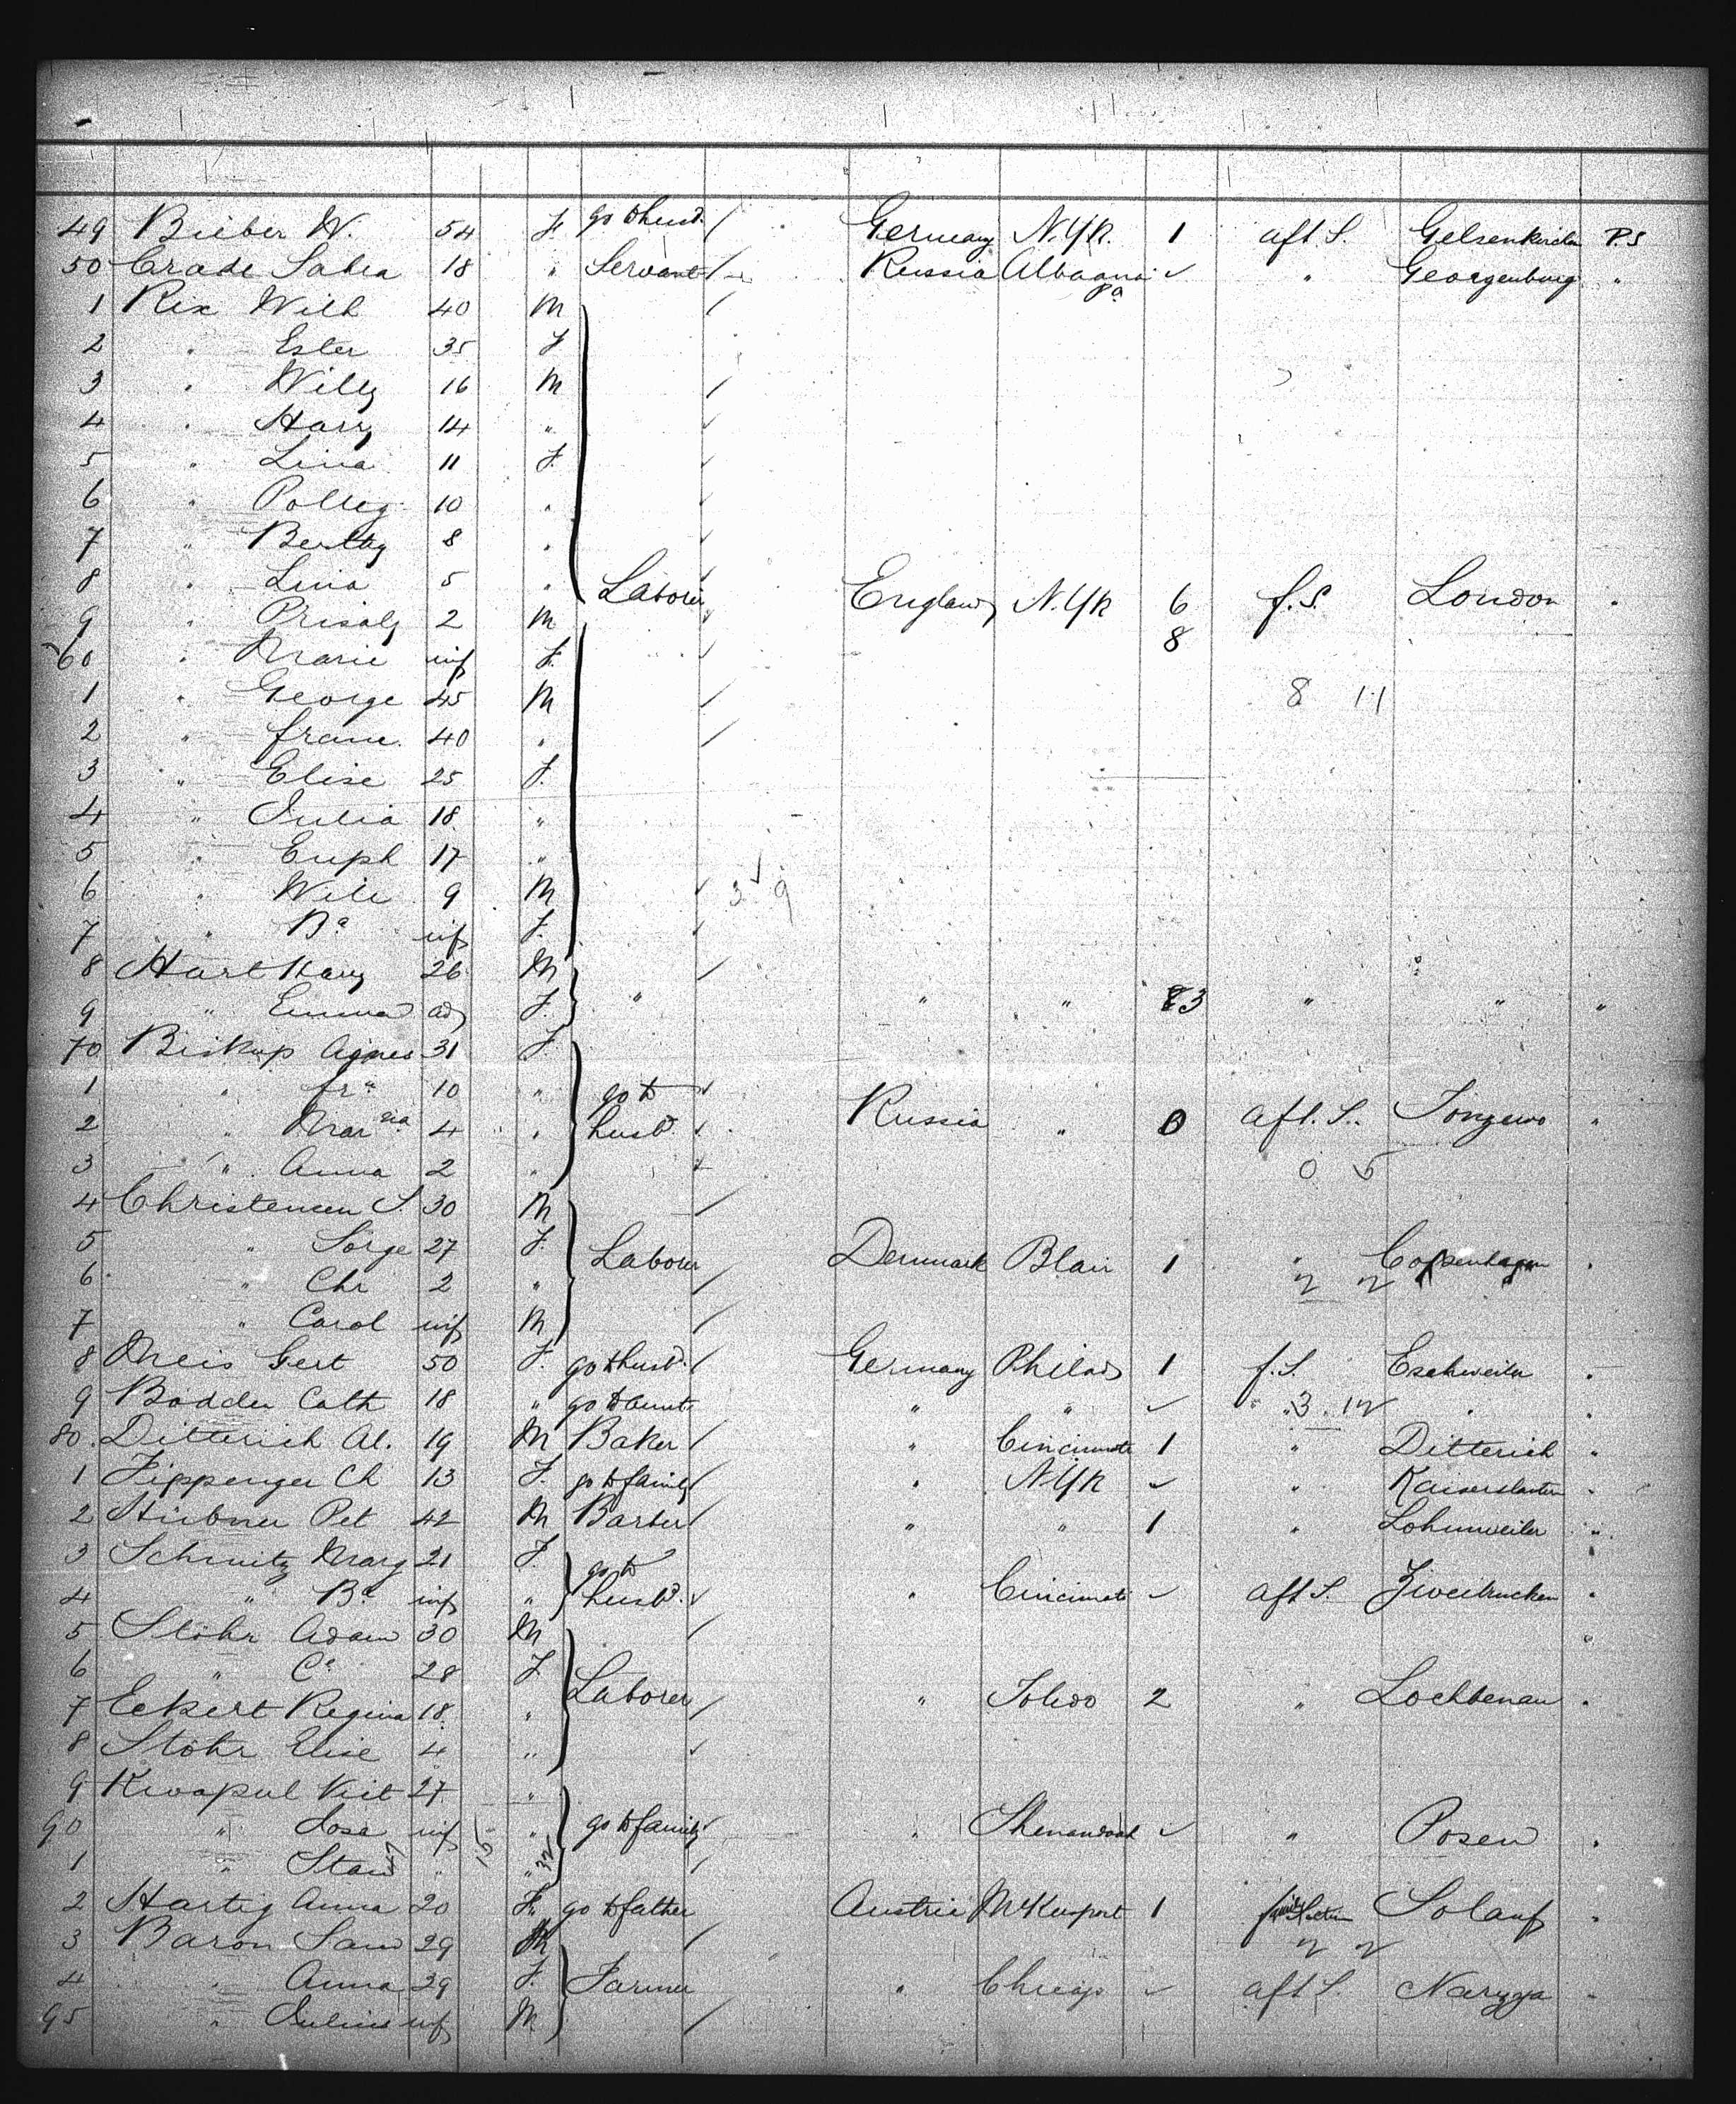 49 Bieber W. 54 F. go to husb. / Germany N.Yk. 1 aft S. Gelsenkirchen P.S
50 Crade Sabia 18 " Servant / Russia " Georgenburg "
Pa
1 Rix Will 40 M /
2 " Ester 35 F
3 " Willy 16 M /
4 " Harry 14 " ✓
5 " Lina 11 F. ✓
6 " Polley 10 " ✓
7 " Berthy 8 " ✓
8 " Lina 5 " Laborer England N.Yk 6 f.S. London "
9 " 2 M 8
60 " Marie inf F. ✓
1 " George 45 M / 8 11
2 " franc. 40 " /
3 " Elise 25 F.
4 " Julia 18 "
5 " Euph 17 "
6 " Will 9 M ✓ 3 9
7 " Ba inf F. ✓
8 Hart Harry 26 M /
9 " Emma ad F. " " " 3 " " "
70 Biskup Agnes 31 F.
1 " fra 10 " go to ✓
2 " Mar 4 " husb. ✓ Russia " 0 aft. S. "
3 " Anna 2 " 0 5
4 Christensen S. 30 M /
5 " Sorge 27 F. Laborer Denmark Blair 1 " Copenhagen "
6 " Chr 2 " / 2 2
7 " Carol inf M /
8 Meis Gert 50 F. go to husb. / Germany Philad 1 f.S. Eschweiler "
9 Bödder Cath 18 " go to aunt " " ✓ " 3 12 " "
80. Ditterich Al. 19 M Baker / " Cincinnati 1 " Ditterich "
1 Fippenger Ch 13 F. go to family / " N.Yk ✓ " Kaiserslautern "
2 Hübner Pet 42 M Barber / " " 1 " Lohnweiler "
3 Schmitz Marg 21 F. go to
4 " Ba inf " husb. ✓ " Cincinnati ✓ aft S. Zweibrucken "
5 Stöhr Adam 30 M /
6 " Ca 28 F
7 Eckert Regina 18 " Laborer / " Toledo 2 " Lochtenau "
8 Stöhr Elise 4 " ✓
9 Kwapul Vict 27 "
90 " Josa inf 15 " go to family ✓ " Shenandoah ✓ " Posen "
1 " Stan " " 32 /
2 Hartig Anna 20 F. go to father Austria McKeesport 1 Solauf "
3 Baron Sam 29 M / 2 2
4 " Anna 29 F. Farmer " Chicago ✓ aft S. "
95 " Julius inf M /